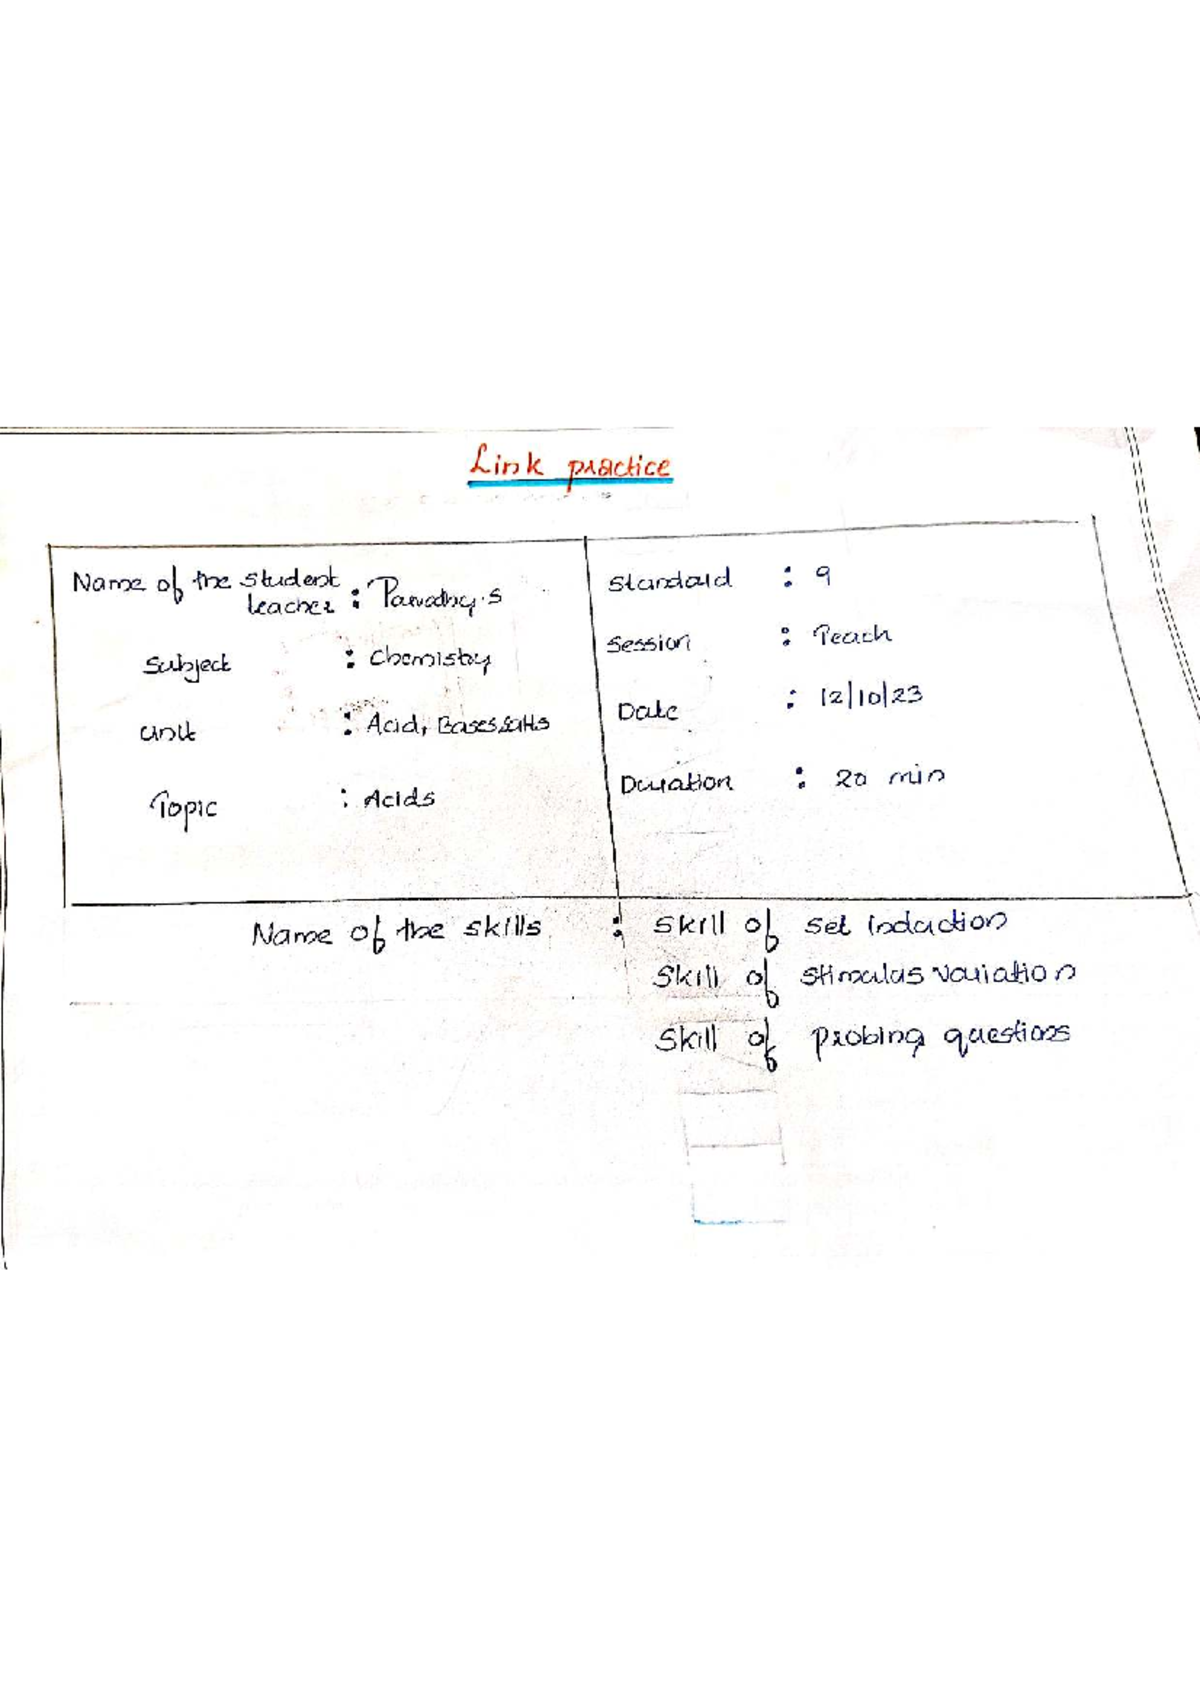 Link practice
Name of the student
teacher : Parvathy.S
Subject : Chemistry
Unit : Acid, Bases, salts
Topic : Acids
Standard : 9
Session : Teach
Date : 12/10/23
Duration : 20 min
Name of the skills : Skill of set induction
Skill of stimulus variation
Skill of probing questions